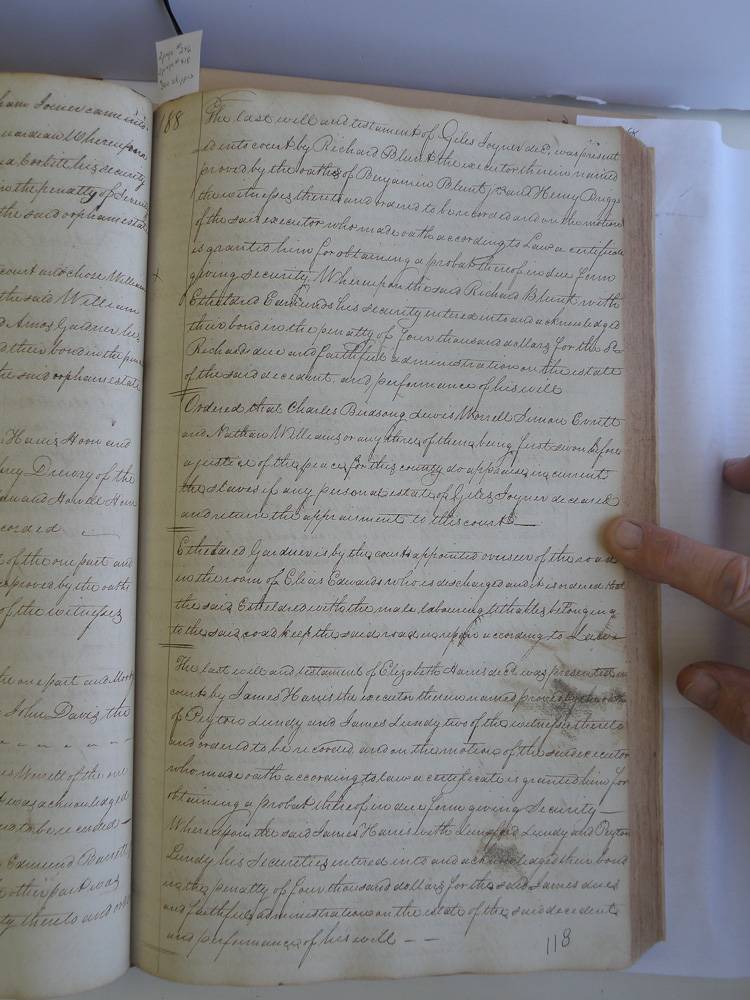 ham Joiner came into
Guardian Whereupon
his security
in the penalty of Seven
the said orphans estate
court and chose William
the said William
Amos Gardner his
their bond in the
the said orphans estate
Harris Horn and
Drewry of the
Howell Horn
corded
of the one part and
proved by the oaths
of the witnesses
the one part and
John Davis the
Worrell of the one
was acknowledged
to be recorded
Edmund Barrett
other part was
thereto and
188
The last will and testament of Giles Joyner decd, was present
ed into court by Richard Blunt the executor therein named
proved by the oaths of Benjamin Blunt and Henry Briggs
the witnesses thereto and ordered to be recorded and on the motion
of the said executor who made oath according to Law a certificate
is granted him for obtaining a probat thereof in due form
giving security Whereupon the said Richard Blunt with
Etheldred Edmunds his security entered into and acknowledged
their bond in the penalty of four thousand dollars for the sd
Richards due and faithful administration on the estate
of the said decedent and performance of his will
Ordered that Charles Birdsong Lewis Worrell Simon Everitt
and Nathan Williams or any three of them being first sworn before
a justice of the peace for this county do appraise in current
the slaves if any personal estate of Giles Joyner deceased
and return the appraisment to this court
Etheldred Gardner is by the court appointed overseer of the road
in the room of Elias Edwards who is discharged and it is ordered that
the said Etheldred with the male labouring tithables belonging
to the said road keep the said road in repair according to Law
The last will and testament of Elizabeth Harris decd was presented in
court by James Harris the executor therein named proved by the oaths
of Peyton Lundy and James Lundy two of the witnesses thereto
and ordered to be recorded and on the motion of the said executor
who made oath according to law a certificate is granted him for
obtaining a probat thereof in due form giving Security
Whereupon the said James Harris with Lunsford Lundy and Peyton
Lundy his Securities entered into and acknowledged their bond
in the penalty of four thousand dollars for the said James dues
and faithful administration on the estate of the said decedent
and performance of his will
118